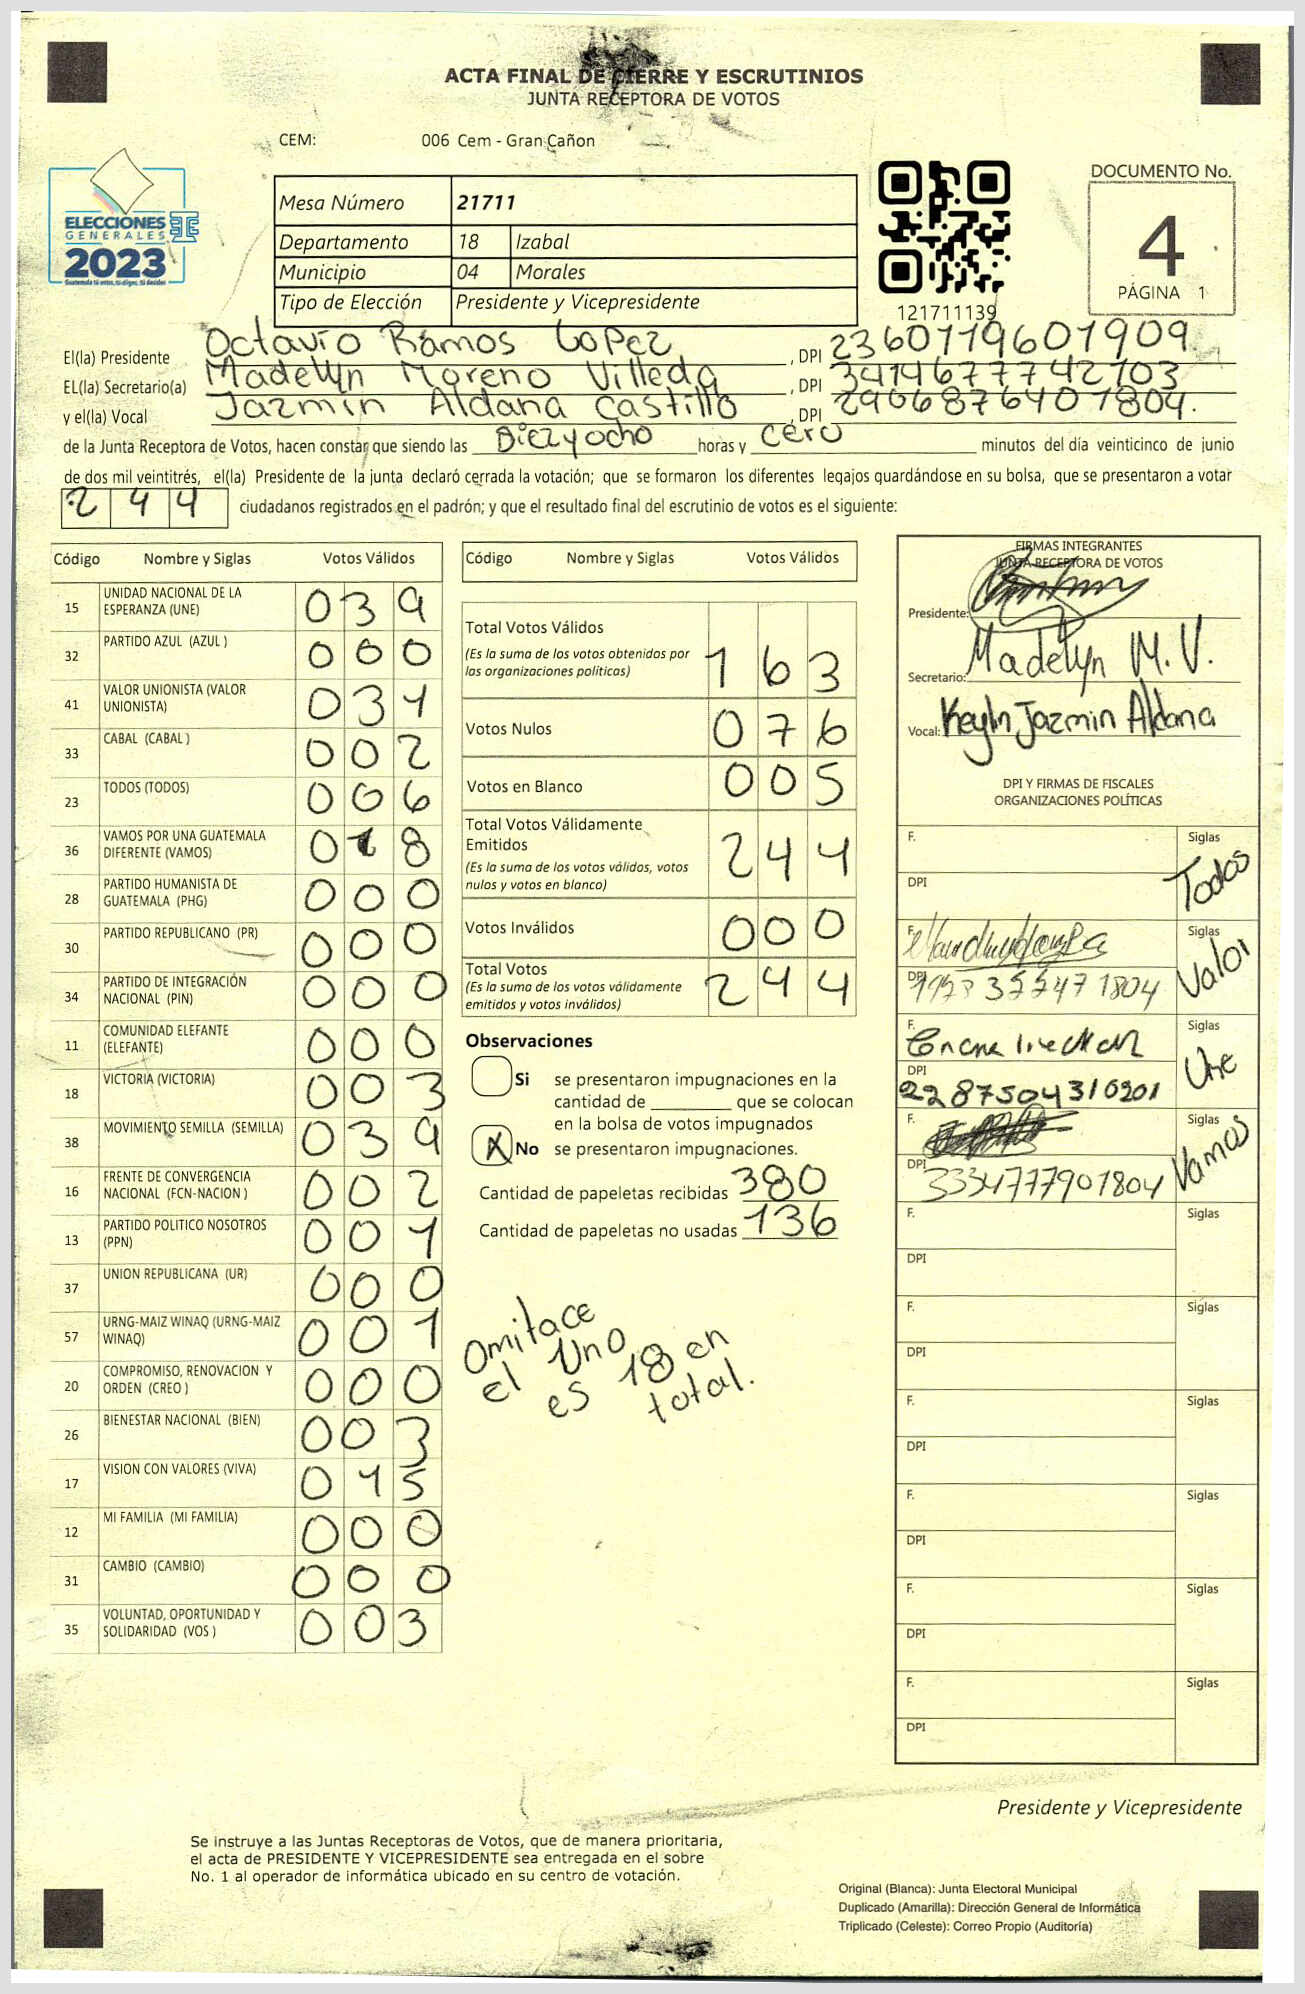 ACTA FINAL DE CIERRE Y ESCRUTINIOS
JUNTA RECEPTORA DE VOTOS
CEM: 006 Cem - Gran Cañon
ELECCIONES
GENERALES
2023
Guatemala tú votas, tú eliges, tú decides
Mesa Número 21711
Departamento 18 Izabal
Municipio 04 Morales
Tipo de Elección Presidente y Vicepresidente
121711139
DOCUMENTO No.
4
PÁGINA 1
El(la) Presidente Octavio Ramos Lopez , DPI 2360119601909
EL(la) Secretario(a) Madelyn Moreno Villeda , DPI 3414677742103
y el(la) Vocal Jazmin Aldana Castillo , DPI 2906876401804.
de la Junta Receptora de Votos, hacen constar que siendo las Diezyocho horas y cero minutos del día veinticinco de junio
de dos mil veintitrés, el(la) Presidente de la junta declaró cerrada la votación; que se formaron los diferentes legajos guardándose en su bolsa, que se presentaron a votar
244 ciudadanos registrados en el padrón; y que el resultado final del escrutinio de votos es el siguiente:
Código Nombre y Siglas Votos Válidos
15 UNIDAD NACIONAL DE LA ESPERANZA (UNE) 039
32 PARTIDO AZUL (AZUL ) 000
41 VALOR UNIONISTA (VALOR UNIONISTA) 031
33 CABAL (CABAL ) 002
23 TODOS (TODOS) 006
36 VAMOS POR UNA GUATEMALA DIFERENTE (VAMOS) 018
28 PARTIDO HUMANISTA DE GUATEMALA (PHG) 000
30 PARTIDO REPUBLICANO (PR) 000
34 PARTIDO DE INTEGRACIÓN NACIONAL (PIN) 000
11 COMUNIDAD ELEFANTE (ELEFANTE) 000
18 VICTORIA (VICTORIA) 003
38 MOVIMIENTO SEMILLA (SEMILLA) 039
16 FRENTE DE CONVERGENCIA NACIONAL (FCN-NACION ) 002
13 PARTIDO POLITICO NOSOTROS (PPN) 001
37 UNION REPUBLICANA (UR) 000
57 URNG-MAIZ WINAQ (URNG-MAIZ WINAQ) 001
20 COMPROMISO, RENOVACION Y ORDEN (CREO ) 000
26 BIENESTAR NACIONAL (BIEN) 003
17 VISION CON VALORES (VIVA) 015
12 MI FAMILIA (MI FAMILIA) 000
31 CAMBIO (CAMBIO) 000
35 VOLUNTAD, OPORTUNIDAD Y SOLIDARIDAD (VOS ) 003
Código Nombre y Siglas Votos Válidos
Total Votos Válidos 163
(Es la suma de los votos obtenidos por
las organizaciones politicas)
Votos Nulos 076
Votos en Blanco 005
Total Votos Válidamente
Emitidos 244
(Es la suma de los votos válidos, votos
nulos y votos en blanco)
Votos Inválidos 000
Total Votos 244
(Es la suma de los votos válidamente
emitidos y votos inválidos)
Observaciones
Si se presentaron impugnaciones en la
cantidad de ________ que se colocan
en la bolsa de votos impugnados
X No se presentaron impugnaciones.
Cantidad de papeletas recibidas 380
Cantidad de papeletas no usadas 136
Omitace
el Uno
es 18 en
total.
FIRMAS INTEGRANTES
JUNTA RECEPTORA DE VOTOS
Presidente:
Secretario: Madelyn M.V.
Vocal: Keyln Jazmin Aldana
DPI Y FIRMAS DE FISCALES
ORGANIZACIONES POLÍTICAS
F. Siglas Todos
DPI
F. Siglas Valor
DPI
F. Siglas Une
DPI 2287504310201
F. Siglas Vamos
DPI 3334777901804
F. Siglas
DPI
F. Siglas
DPI
F. Siglas
DPI
F. Siglas
DPI
F. Siglas
DPI
F. Siglas
DPI
Presidente y Vicepresidente
Se instruye a las Juntas Receptoras de Votos, que de manera prioritaria,
el acta de PRESIDENTE Y VICEPRESIDENTE sea entregada en el sobre
No. 1 al operador de informática ubicado en su centro de votación.
Original (Blanca): Junta Electoral Municipal
Duplicado (Amarilla): Dirección General de Informática
Triplicado (Celeste): Correo Propio (Auditoría)